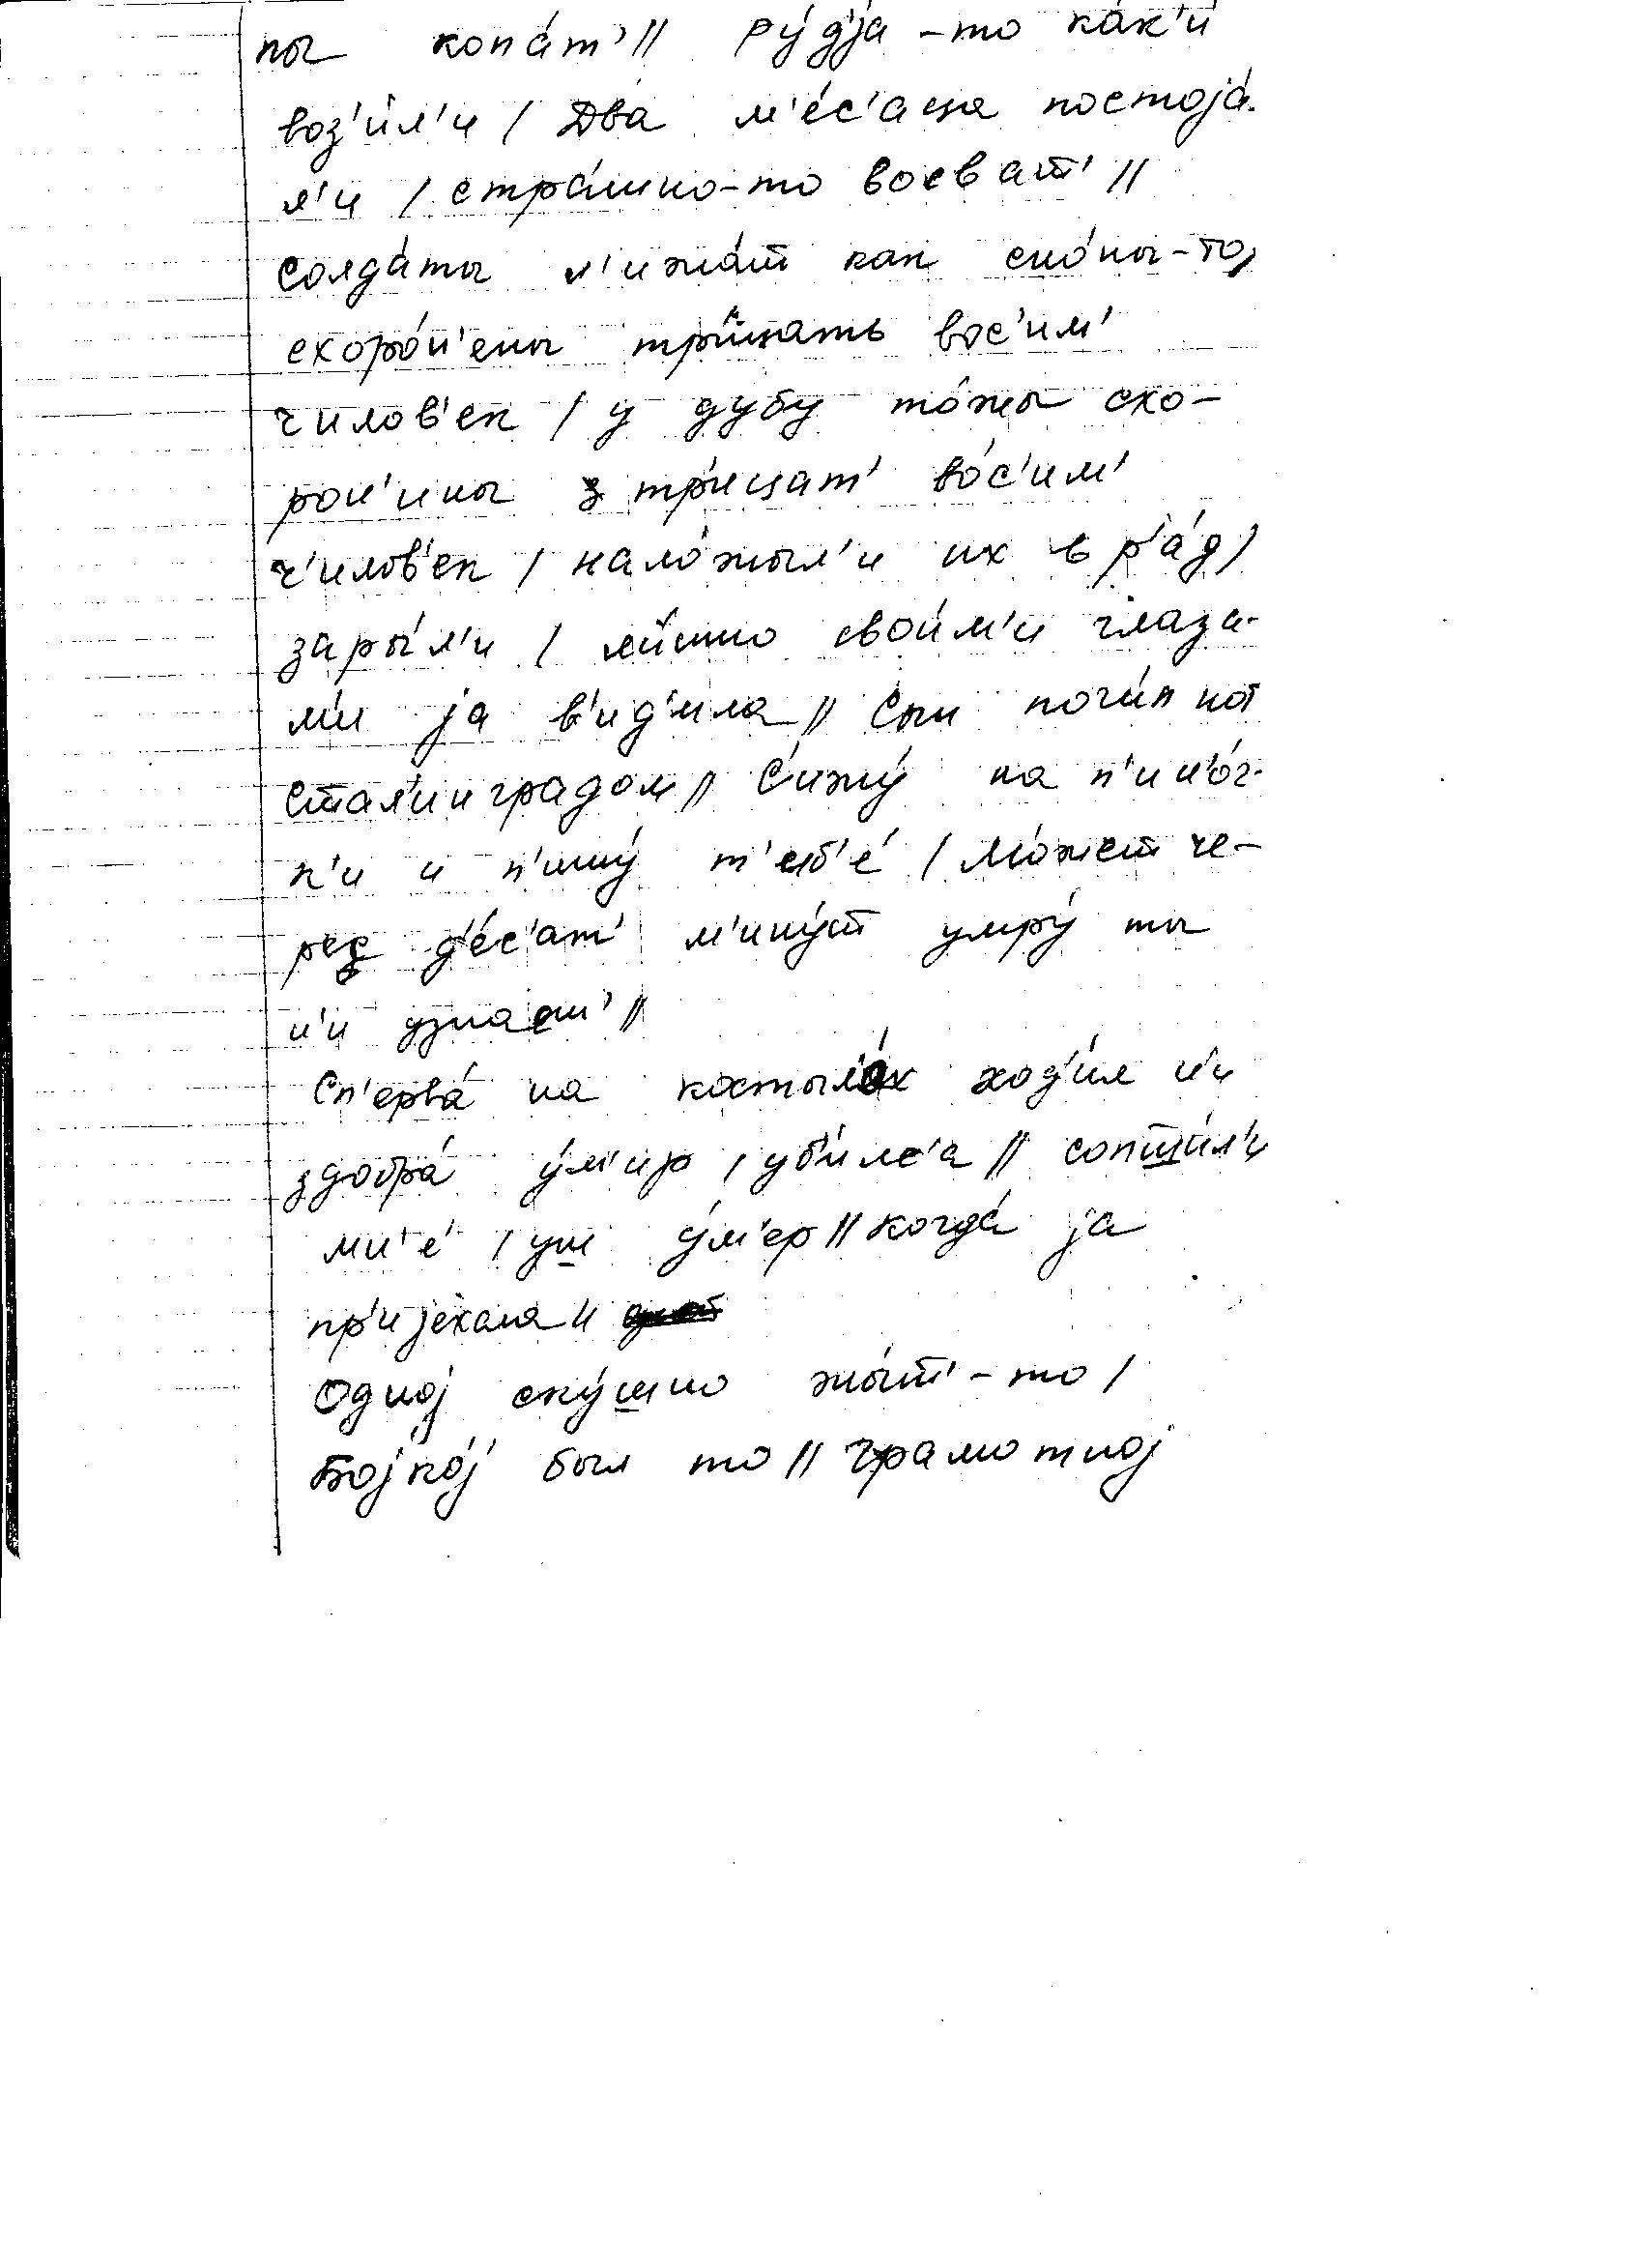 пы копа́т’ // Ру́д’jа-то как’и́
воз’и́л’и / Два м’е́с’аца постоjа́-
л’и / стра́шно-то воеват’ //
солда́ты л’ижа́т как сно́пы-то,
схоро́н’ены три́цать вос’им’
чилов’ек / у дубу то́жы схо-
рон’ины тр’ицат’ во́с’им’
ч’илов’ек / нало́жыл’и их в р’а́д /
зары́л’и / свои́м’и глаза-
м’и jа в’и́д’ила // Сын поги́п под
Стал’инградом // С’ижу́ на п’ин’о́ч-
к’и и п’ишу́ т’еб’е́ / мо́жет че-
рез д’е́с’ат’ м’ину́т умру́ ты
н’и узнаеш’ //
Сп’ерва́ на костыл’а́х ход’и́л н’и
здобра́ у́м’ир / уб’и́лс’а // сопшш’и́л’и
мн’е́ / уш у́м’ер // когда́ jа
пр’иjе́хала //
Одноj ску́шно жы́т’-то /
боjко́j был то // грамотноj